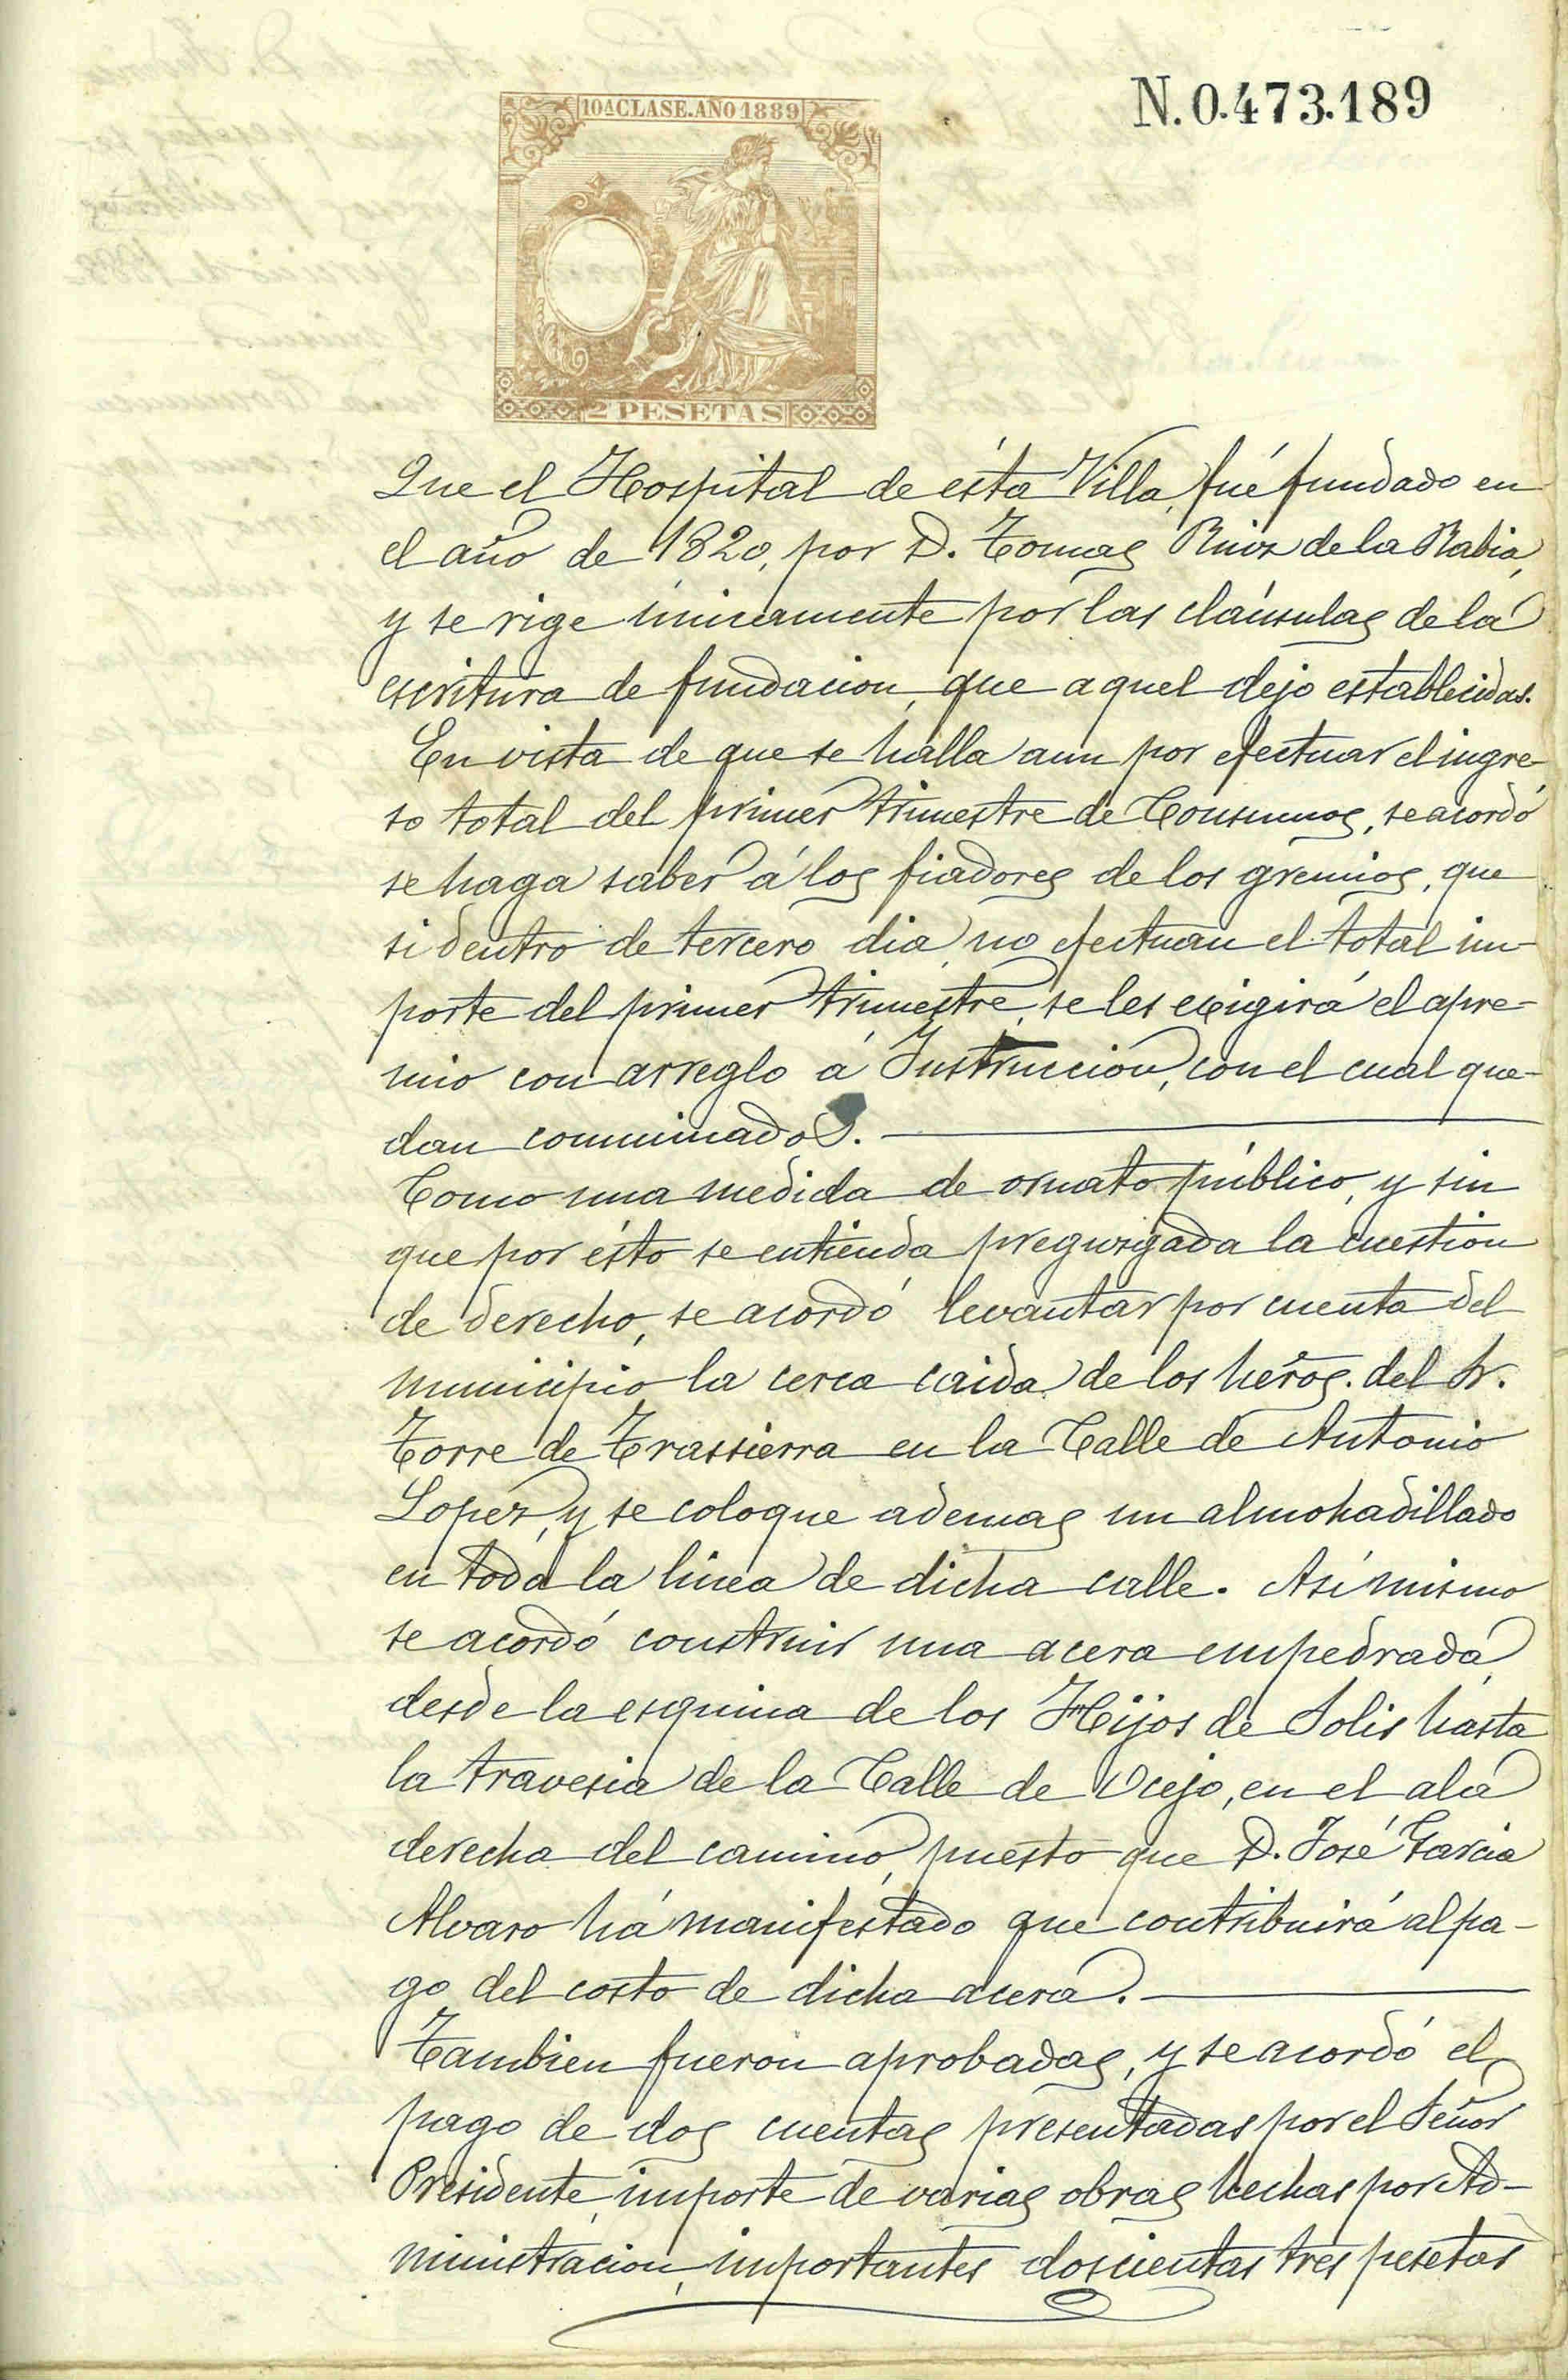 N.0.473.189
10ª CLASE. AÑO 1889
2 PESETAS
Que el Hospital de ésta Villa, fué fundado en
el año de 1820, por D. Tomas Ruiz de la Rabia,
y se rige únicamente por las cláusulas de la
escritura de fundacion, que aquel dejo establecidas.
En vista de que se halla aun por efectuar el ingre-
so total del primer trimestre de Consumos, se acordó
se haga saber á los fiadores de los gremios, que
si dentro de tercero dia, no efectuan el total im-
porte del primer trimestre, se les exigirá el apre-
mio con arreglo á Instruccion, con el cual que-
dan conminados.
Como una medida de ornato público, y sin
que por ésto se entienda preguzgada la cuestion
de derecho, se acordó levantar por cuenta del
municipio la cerca caida de los heros. del Sr.
Torre de Trassierra en la Calle de Antonio
Lopez, y se coloque ademas un almohadillado
en toda la linea de dicha calle. Asi mismo
se acordó construir una acera empedrada,
desde la esquina de los Hijos de Solis hasta
la travesia de la Calle de Ocejo, en el ala
derecha del camino, puesto que D. José Garcia
Alvaro há manifestado que contribuirá al pa-
go del costo de dicha acera.
Tambien fueron aprobadas, y se acordó el
pago de dos cuentas presentadas por el Señor
Presidente, importe de varias obras hechas por Ad-
ministracion, importantes doscientas tres pesetas